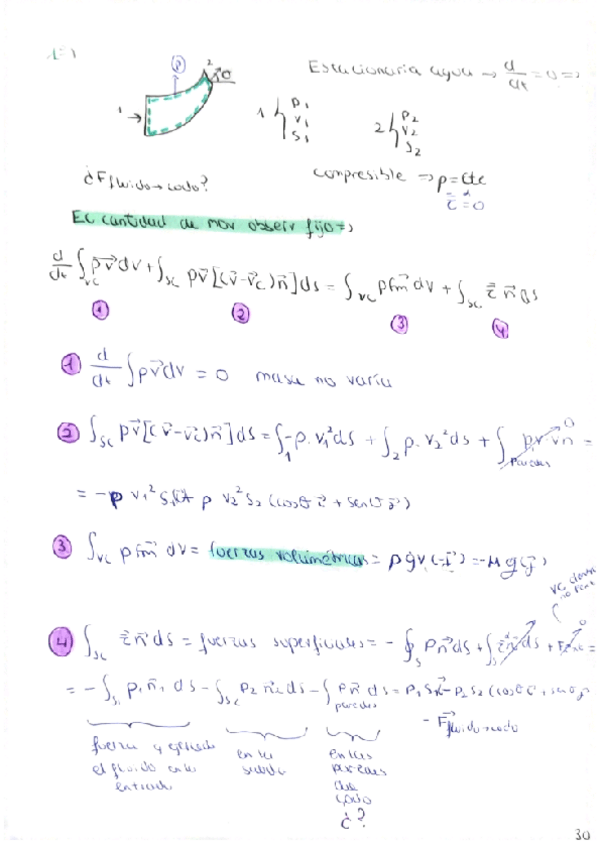 1
2
θ
Estacionaria agua → d/dt = 0 =>
1 { P₁ V₁ S₁
2 { P₂ V₂ S₂
¿F fluido→codo?
compresible => ρ = cte
τ = 0
Ec cantidad de mov observ fijo =>
d/dt ∫vc ρv⃗ dv + ∫sc ρv⃗ [(v⃗-v⃗c) n⃗] ds = ∫vc ρfm⃗ dv + ∫sc τ n⃗ ds
① ② ③ ④
① d/dt ∫ρv⃗dv = 0 masa no varía
② ∫sc ρv⃗[(v⃗-v⃗c)n⃗]ds = ∫₁ -ρ·v₁²ds + ∫₂ ρ·v₂²ds + ∫paredes ρv·vn⃗ 0 =
= -ρ v₁² S₁ ρ v₂² S₂ (cosθ i⃗ + senθ j⃗)
③ ∫vc ρfm⃗ dv = fuerzas volumétricas = ρgv(-j⃗) = -Mg(j⃗)
vc dentro no
④ ∫sc τn⃗ds = fuerzas superficiales = -∮s Pn⃗ds + ∫s τn⃗ds + F 0 =
= -∫s₁ P₁n⃗₁ ds - ∫s₂ P₂n⃗₂ ds - ∫paredes Pn⃗ ds = P₁S₁i⃗ - P₂S₂ (cosθ i⃗ + senθ j⃗
- F⃗ fluido→codo
fuerza q ejerce
el fluido en la
entrada
en la
salida
en las
paredes
del
codo
¿?
30